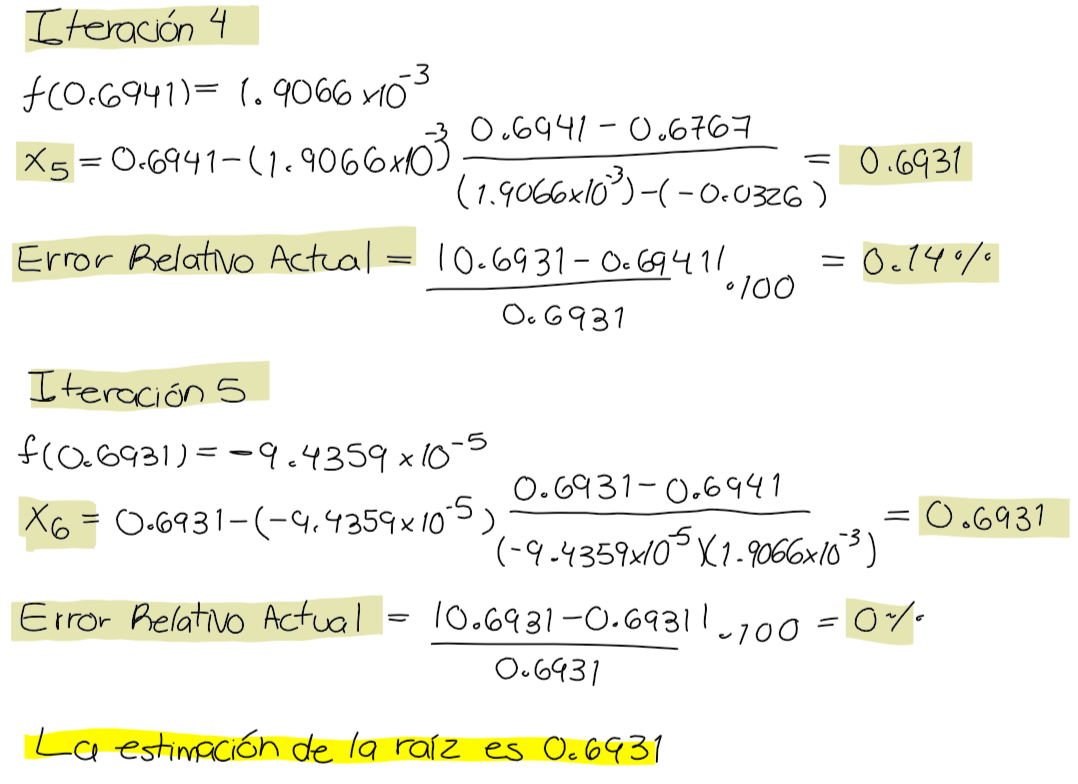 Iteración 4
f(0.6941)= 1.9066 x10^-3
X5 = 0.6941-(1.9066x10^-3) (0.6941 - 0.6767)/((1.9066x10^-3)-(-0.0326)) = 0.6931
Error Relativo Actual = |0.6931-0.6941|/0.6931 .100 = 0.14%
Iteración 5
f(0.6931) = -9.4359 x 10^-5
X6 = 0.6931-(-9.4359x10^-5) (0.6931-0.6941)/((-9.4359x10^-5)(1.9066x10^-3)) = 0.6931
Error Relativo Actual = |0.6931-0.6931|/0.6931 .100 = 0%
La estimación de la raíz es 0.6931